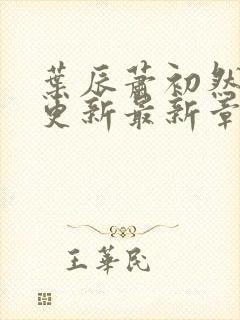 葉辰蕭初然
更新最新章
王華民